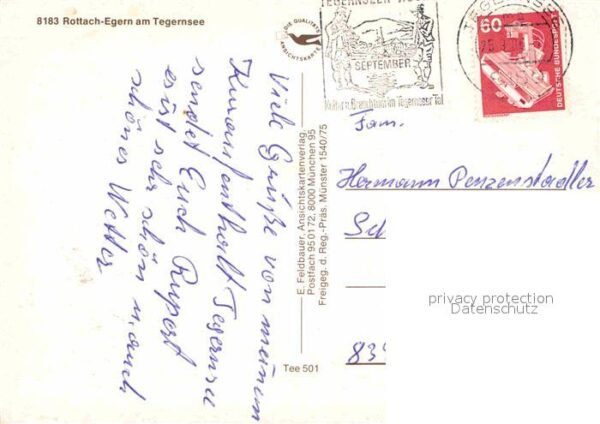 8183 Rottach-Egern am Tegernsee
DIE QUALITÄTS
ANSICHTSKARTE
Viele Grüße von meinem
Kuraufenthalt Tegernsee
sendet Euch Rupert
es ist sehr schön u. auch
schönes Wetter
E. Feldbauer, Ansichtskartenverlag,
Postfach 95 01 72, 8000 München 95
Freigeg. d. Reg.-Präs. Münster 1540/75
Tee 501
TEGERNSEER
SEPTEMBER
Kultur u. Brauchtum im Tegernseer Tal
TEGERNSEE
60
DEUTSCHE BUNDESPOST
Fam.
Hermann Penzenstadler
Sc
839
privacy protection
Datenschutz